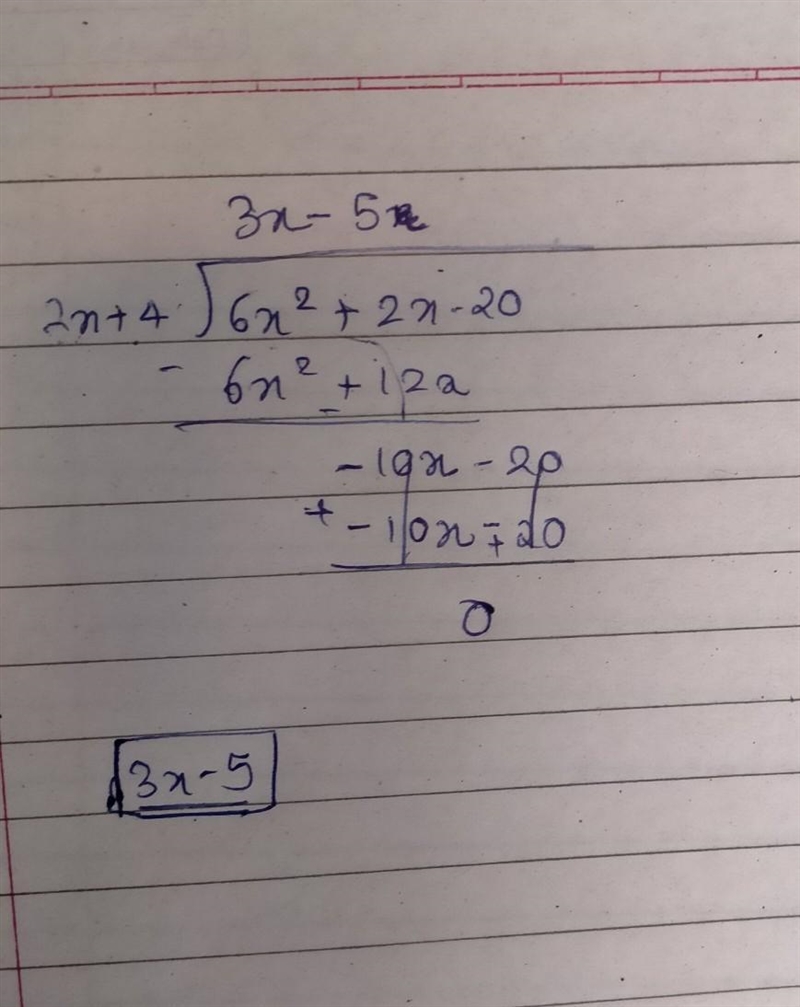 3x - 5
2x+4 ) 6x² + 2x - 20
- 6x² + 12x
-
-10x - 20
+ -10x - 20
+
0
3x - 5